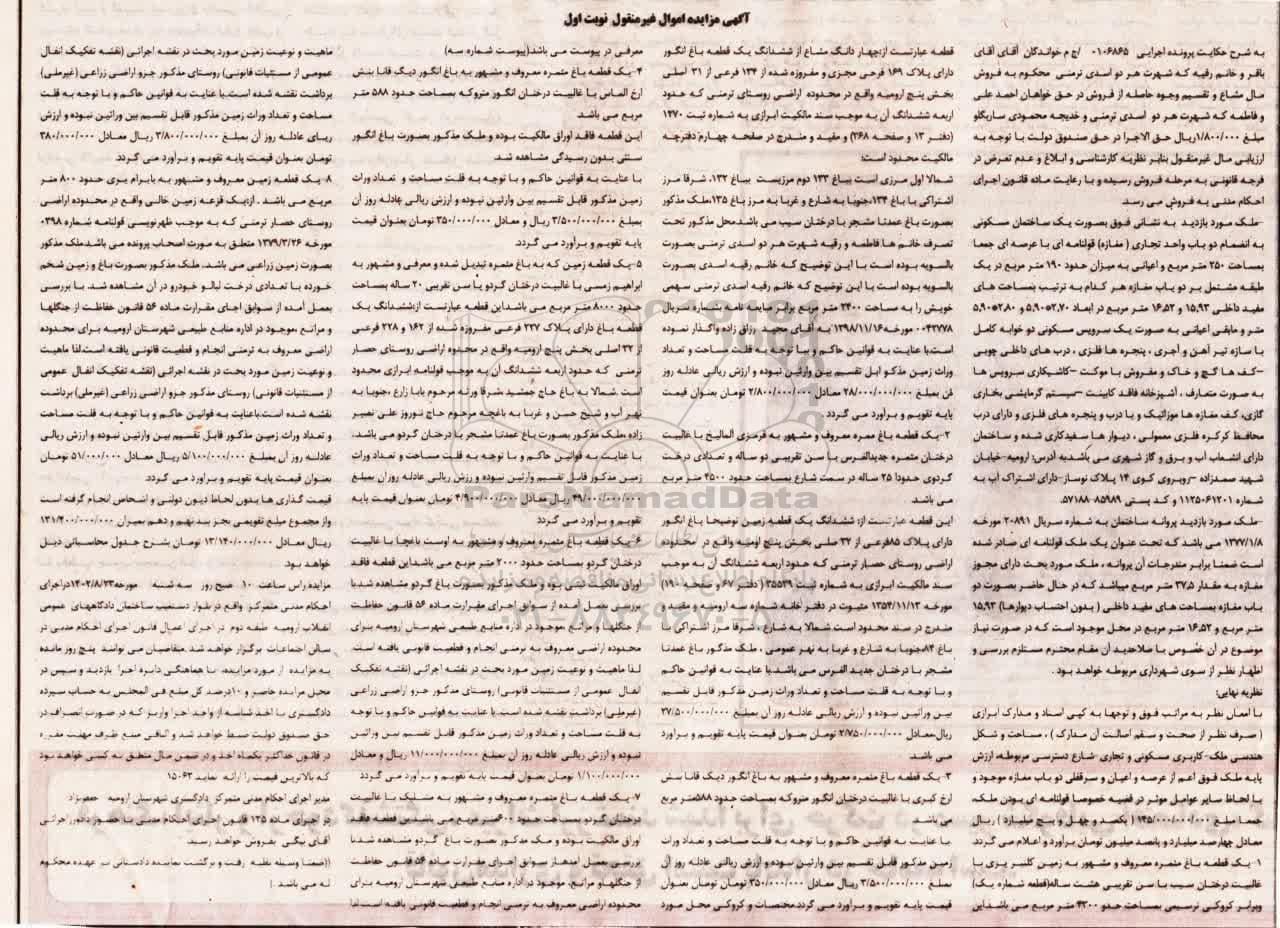 آگهی مزایده اموال غیرمنقول نوبت اول
به شرح حکایت پرونده اجرایی ۰۱۰۶۸۶۵ /ج م خواندگان آقای آقای
باقر و خانم رقیه که شهرت هر دو اسدی ترمنی محکوم به فروش
مال مشاع و تقسیم وجوه حاصله از فروش در حق خواهان احمد علی
و فاطمه که شهرت هر دو اسدی ترمنی و خدیجه محمودی ساریگلو
مبلغ ۱/۸۰۰/۰۰۰ریال حق الاجرا در حق صندوق دولت با توجه به
ارزیابی مال غیرمنقول بنابر نظریه کارشناسی و ابلاغ و عدم تعرض در
فرجه قانونی به مرحله فروش رسیده و با رعایت ماده قانون اجرای
احکام مدنی به فروش می رسد.
-ملک مورد بازدید به نشانی فوق بصورت یک ساختمان مسکونی
به انضمام دو باب واحد تجاری ( مغازه) قولنامه ای با عرصه ای جمعا
بمساحت ۲۵۰ متر مربع و اعیانی به میزان حدود ۱۹۰ متر مربع در یک
طبقه مشتمل بر دو باب مغازه هر کدام به ترتیب بمساحت های
مفید داخلی ۱۵,۹۳ و ۱۶,۵۲ متر مربع در ابعاد ۲,۷۰*۵,۹۰ و ۲,۸۰*۵,۹۰
متر و مابقی اعیانی به صورت یک سرویس مسکونی دو خوابه کامل
با سازه تیر آهن و آجری ، پنجره ها فلزی ، درب های داخلی چوبی
-کف ها گچ و خاک و مفروش با موکت -کاشیکاری سرویس ها
به صورت متعارف ، آشپزخانه فاقد کابینت -سیستم گرمایشی بخاری
گازی، کف مغازه ها موزائیک و با درب و پنجره های فلزی و دارای درب
محافظ کرکره فلزی معمولی ، دیوار ها سفیدکاری شده و ساختمان
دارای انشعاب آب و برق و گاز شهری می باشدبه آدرس: ارومیه-خیابان
شهید صمدزاده -روبروی کوی ۱۴ پلاک نوساز-دارای اشتراک آب به
شماره ۱۱۲۵۰۶۱۲۰۱ و کد پستی ۸۵۹۸۹-۵۷۱۸۸.
-ملک مورد بازدید پروانه ساختمان به شماره سریال ۲۰۸۹۱ مورخه
۱۳۷۷/۱/۸ می باشد که تحت عنوان یک ملک قولنامه ای صادر شده
است ضمنا برابر مندرجات آن پروانه ، ملک مورد بحث دارای مجوز
مغازه به مقدار ۳۷,۵ متر مربع میباشد که در حال حاضر بصورت دو
باب مغازه بمساحت های مفید داخلی ( بدون احتساب دیوارها) ۱۵,۹۳
متر مربع و ۱۶,۵۲ متر مربع در محل موجود است که در صورت نیاز
موضوع در آن خصوص با صلاحدید آن مقام محترم مستلزم بررسی و
اظهار نظر از سوی شهرداری مربوطه خواهد بود .
نظریه نهایی:
با امعان نظر به مراتب فوق و توجها به کپی اسناد و مدارک ابرازی
( صرف نظر از صحت و سقم اصالت آن مدارک ) ، مساحت و شکل
هندسی ملک-کاربری مسکونی و تجاری -شارع دسترسی مربوطه، ارزش
پایه ملک فوق اعم از عرصه و اعیان و سرقفلی دو باب مغازه موجود و
با لحاظ سایر عوامل موثر در قضیه خصوصا قولنامه ای بودن ملک،
جمعا مبلغ ۱۴۵/۰۰۰/۰۰۰/۰۰۰ ( یکصد و چهل و پنج میلیارد ) ریال
معادل چهارصد میلیارد و پانصد میلیون تومان برآورد و اعلام می گردد.
۱-یک قطعه باغ مثمره معروف و مشهور به زمین گلنبر یزی با
غالبیت درختان سیب با سن تقریبی هشت ساله(قطعه شماره یک)
وبرابر کروکی ترسیمی بمساحت حدو ۴۳۰۰ متر مربع می باشداین
قطعه عبارتست از:چهار دانگ مشاع از ششدانگ یک قطعه باغ انگور
دارای پلاک ۱۶۹ فرعی مجزی و مفروزه شده از ۱۳۴ فرعی از ۳۱ اصلی
بخش پنج ارومیه واقع در محدوده اراضی روستای ترمنی که حدود
اربعه ششدانگ آن به موجب سند مالکیت ابرازی به شماره ثبت ۱۴۷۰
(دفتر ۱۳ و صفحه ۲۶۸) و مقید و مندرج در صفحه چهارم دفترچه
مالکیت محدود است:
شمالا اول مرزی است بباغ ۱۳۳ دوم مرزیست بباغ ۱۳۲، شرقا مرز
اشتراکی با باغ ۱۳۴،جنوبا به شارع و غربا به مرز باغ ۱۳۵،ملک مذکور
بصورت باغ عمدتا مشجر با درختان سیب می باشد.محل مذکور تحت
تصرف خانم ها فاطمه و رقیه شهرت هر دو اسدی ترمنی بصورت
بالسویه بوده است با این توضیح که خانم رقیه اسدی بصورت
بالسویه بوده است با این توضیح که خانم رقیه اسدی ترمنی سهمی
خویش را به مساحت ۲۴۰۰ متر مربع برابر مبایعه نامه بشماره سریال
۰۰۴۲۷۷۸ مورخه ۱۳۹۸/۱۱/۱۶ به آقای مجید رزاق زاده واگذار نموده
است.با عنایت به قوانین حاکم و با توجه به قلت مساحت و تعداد
وراث زمین مذکو ابل تقسیم بین وارثین نبوده و ارزش ریالی عادله روز
فن بمبلغ ۲۸/۰۰۰/۰۰۰/۰۰۰ معادل ۲/۸۰۰/۰۰۰/۰۰۰ تومان بعنوان قیمت
پایه تقویم و برآورد می گردد
۲-یک قطعه باغ ممره معروف و مشهور به قرمزی آلمالیخ با غالبیت
درختان مثمره جدیدالغرس با سن تقریبی دو ساله و تعدادی درخت
گردوی حدودا ۲۵ ساله در سمت شارع بمساحت حدود ۴۵۰۰ متر مربع
می باشد.
این قطعه عبارتست از: ششدانگ یک قطعه زمین توضیحا باغ انگور
دارای پلاک ۸۵فرعی از ۳۲ صلی بخش پنج اومیه واقع در محدوده
اراضی روستای حصار ترمنی که حدود اربعه ششدانگ آن به موجب
سند مالکیت ابرازی به شماره ثبت ۳۵۵۳۹ ( دفتر ۶۷ و صفحه ۱۹۰)
مورخه ۱۳۵۴/۱۱/۱۳ مثبوت در دفتر خانه شماره سه ارومیه مقید و
مندرج در سند محدود است شمالا به شارع ، شرقا مرز اشتراکی با
باغ ۸۳،جنوبا به شارع و غربا به نهر عمومی ، ملک مذکور باغ عمدتا
مشجر با درختان جدید الغرس می باشد.با عنایت به قوانین حاکم
و با توجه به قلت مساحت و تعداد وراث زمین مذکور قابل تقسیم
بین وراثین نبوده و ارزش ریالی عادله روز آن بمبلغ ۲۷/۵۰۰/۰۰۰/۰۰۰
ریال،معادل ۲/۷۵۰/۰۰۰/۰۰۰ تومان بعنوان قیمت پایه تقویم و برآورد
می باشد.
۳-یک قطعه باغ مثمره معروف و مشهور به باغ انگور دیک قانا سش
ارخ کبری با غالبیت درختان انگور متروکه بمساحت حدود ۵۸۸متر مربع
می باشد.
با عنایت به قوانین حاکم و با توجه به قلت مساحت و تعداد وراث
زمین مذکور قابل تقسیم بین وارثین نبوده و ارزش ریالی عادله روز آن
بمبلغ ۳/۵۰۰/۰۰۰/۰۰۰ ریال معادل ۳۵۰/۰۰۰/۰۰۰ تومان بعنوان
قیمت پایه تقویم و برآورد می گردد.مختصات و کروکی محل مورد
معرفی در پیوست می باشد(پیوست شماره سه)
۴-یک قطعه باغ مثمره معروف و مشهور به باغ انگور دیگ قانا بنش
ارخ الماس با غالبیت درختان انگور متروکه بمساحت حدود ۵۸۸ متر
مربع می باشد.
این قطعه فاقد اوراق مالکیت بوده و ملک مذکور بصورت باغ انگور
سنتی بدون رسیدگی مشاهده شد.
با عنایت به قوانین حاکم و با توجه به قلت مساحت و تعداد وراث
زمین مذکور قابل تقسیم بین وارثین نبوده و ارزش ریالی عادله روز آن
بمبلغ ۳/۵۰۰/۰۰۰/۰۰۰ ریال و معادل ۳۵۰/۰۰۰/۰۰۰ تومان بعنوان قیمت
پایه تقویم و برآورد می گردد.
۵-یک قطعه زمین که به باغ مثمره تبدیل شده و معرفی و مشهور به
ابراهیم زمسی با غالبیت درختان گردو یا سن تقریبی ۲۰ ساله بمساحت
حدود ۸۰۰۰ متر مربع می باشداین قطعه عبارتست از:ششدانگ یک
قطعه باغ دارای پلاک ۲۲۷ فرعی مفروزه شده از ۱۶۲ و ۲۲۸ فرعی
از ۳۲ اصلی بخش پنج ارومیه واقع در محدوه اراضی روستای حصار
ترمنی که حدود اربعه ششدانگ آن به موجب قولنامه ابرازی محدود
است .شمالا به باغ حاج جمشید ،شرقا ورثه مرحوم بابا زارع ،جنوبا به
نهر آب و شیخ حسن و غربا به باغچه مرحوم حاج نوروز علی نصیر
زاده ،ملک مذکور بصورت باغ عمدتا مشجر با درختان گردو می باشد.
با عنایت به قوانین حاکم و با توجه به قلت مساحت و تعداد وراث
زمین مذکور قابل تقسیم وارثین نبوده و رزش ریالی عادله روز ان بمبلغ
۴۹/۰۰۰/۰۰۰/۰۰۰ ریال معادل ۴/۹۰۰/۰۰۰/۰۰۰ تومان بعنوان قیمت پایه
تقویم و برآورد می گردد
۶-یک قطعه باغ مثمره معروف و مشهور به اوست باغچا با غالبیت
درختان گردو بمساحت حدود ۲۰۰۰ متر مربع می باشداین قطعه فاقد
اوراق مالکیت دنی بوه و ملک مذکور بصورت باغ گردو مشاهده شد.با
بررسی بعمل آمده از سوابق اجرای مقرارت ماده ۵۶ قانون حفاظت
از جنگلها و مراتع ،موجود در اداره منابع طبیعی شهرستان ارومیه برای
محدوده اراضی معروف به ترمنی انجام و قطعیت قانونی یافته است.
لذا ماهیت و نوعیت زمین مورد بحث در نقشه اجرائی (نقشه تفکیک
انفال عمومی از مستثنیات قانونی) روستای مذکور جزو اراضی زراعی
(غیرملی) برداشت نقشه شده است.با عنایت به قوانین حاکم و با توجه
به قلت مساحت و تعداد وراث زمین مذکور قابل تقسیم بین وراثین
نبوده و ارزش ریالی عادله روز آن بمبلغ ۱۱/۰۰۰/۰۰۰/۰۰۰ ریال و معادل
۱/۱۰۰/۰۰۰/۰۰۰ تومان بعنوان قیمت پایه تقویم و برآورد می گردد
۷-یک قطعه باغ مثمره معروف و مشهور به مشلیک با غالبیت
درختان گردو بمساحت حدود ۶۰۰متر مربع می باشداین قطعه فاقد
اوراق مالکیت بوده و ملک مذکور بصورت باغ گردو مشاهده شد.با
بررسی بعمل امدهاز سوابق اجرای مقرارت ماده ۵۶ قانون حفاظت
از جنگلهاو مراتع، موجود در اداره منابع طبیعی شهرستان ارومیه برای
محدوده اراضی معروف به ترمنی انجام و قطعیت قانونی یافته است.لذا
ماهیت و نوعیت زمین مورد بحث در نقشه اجرائی (نقشه تفکیک انفال
عمومی از مستثنیات قانونی) روستای مذکور جزو اراضی زراعی (غیرملی)
برداشت نقشه شده است.با عنایت به قوانین حاکم و با توجه به قلت
مساحت و تعداد وراث زمین مذکور قابل تقسیم بین وراثین نبوده و ارزش
ریالی عادله روز آن بمبلغ ۳/۸۰۰/۰۰۰/۰۰۰ ریال معادل ۳۸۰/۰۰۰/۰۰۰
تومان بعنوان قیمت پایه تقویم و برآورد می گردد.
۸-یک قطعه زمین معروف و مشهور به بایرام یری حدود ۸۰۰ متر
مربع می باشد . ازدیک قزعه زمین خالی واقع در محدوده اراضی
روستای حصار ترمنی که به موجب ظهرنویسی قولنامه شماره ۰۳۹۸
مورخه ۱۳۷۹/۳/۲۶ متعلق به مورث اصحاب پرونده می باشد،ملک مذکور
بصورت زمین زراعی می باشد. ملک مذکور بصورت باغ و زمین شخم
خورده با تعدادی درخت تبالو خودرو در آن مشاهده شد. با بررسی
بعمل آمده از سوابق اجای مقرارت ماده ۵۶ قانون حفاظت از جنگلها
و مراتع ،موجود در اداره منابع طبیعی شهرستان ارومیه برای محدوده
اراضی معروف به ترمنی انجام و قطعیت قانونی یافته است.لذا ماهیت
و نوعیت زمین مورد بحث در نقشه اجرائی (نقشه تفکیک انفال عمومی
از مستثنیات قانونی) روستای مذکور جزو اراضی زراعی (غیرملی) برداشت
نقشه شده است.باعنایت به قوانین حاکم و با توجه به قلت مساحت
و تعداد وراث زمین مذکور قابل تقسیم بین وارثین نبوده و ارزش ریالی
عادلـه روز آن بمبلـغ ۵/۱۰۰/۰۰۰/۰۰۰ ریال معادل ۵۱/۰۰۰/۰۰۰ تومان
بعنوان قیمت پایه تقویم و برآورد می گردد.
قیمت گذاری ها بدون لحاظ دیون دولتی و اشخاص انجام گرفته است
واز مجموع مبلغ تقویمی بجز بند نهم و دهم بمیزان ۱۳۱/۴۰۰/۰۰۰/۰۰۰
ریال معادل ۱۳/۱۴۰/۰۰۰/۰۰۰ تومان بشرح جدول محاسباتی ذیل
خواهد بود
مزایده راس ساعت ۱۰ صبح روز سه شنبه مورخه ۱۴۰۲/۸/۲۳دراجرای
احکام مدنی متمرکز واقع در بلوار دستغیب ساختمان دادگاههای عمومی
انقلاب ارومیه طبقه دوم در اجرای اعمال قانون اجرای احکام مدنی در
سالن اجتماعات برگزار خواهد شد .متقاضیان می توانند پنج روز مانده
به مزایده از مورد مزایده، با هماهنگی دایره اجرا بازدید و سپس در
محل مزایده حاضر و ۱۰درصد کل مبلغ فی المجلس به حساب سپرده
دادگستری با اخذ شناسه از واحد اجرا واریز که در صورت انصراف در
حق صندوق دولت ضبط خواهد شد و الباقی مبلغ ظرف مهلت مقرره
در قانون حداکثر یکماه اخذ و در ضمن مال متعلق به کسی خواهد بود
که بالاترین قیمت را ارائه نماید ۱۵۰۶۳
مدیر اجرای احکام مدنی متمرکز دادگستری شهرستان ارومیه جعفرنژاد
در اجرای ماده ۱۳۵ قانون اجرای احکام مدنی با حضور دادورز اجرائی
آقای بیگی بفروش خواهد رسید.
((ضمنا وسیله نقلیه رفت و برگشت نماینده دادستانی به عهده محکوم
له می باشد .)
ParsNamadData
۰۲۱-۸۸۳۴۹۶۷۰-۵